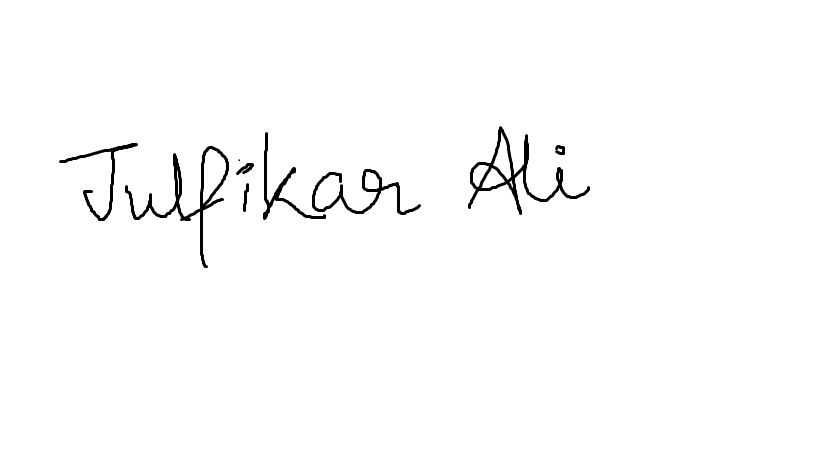 Julfikar Ali